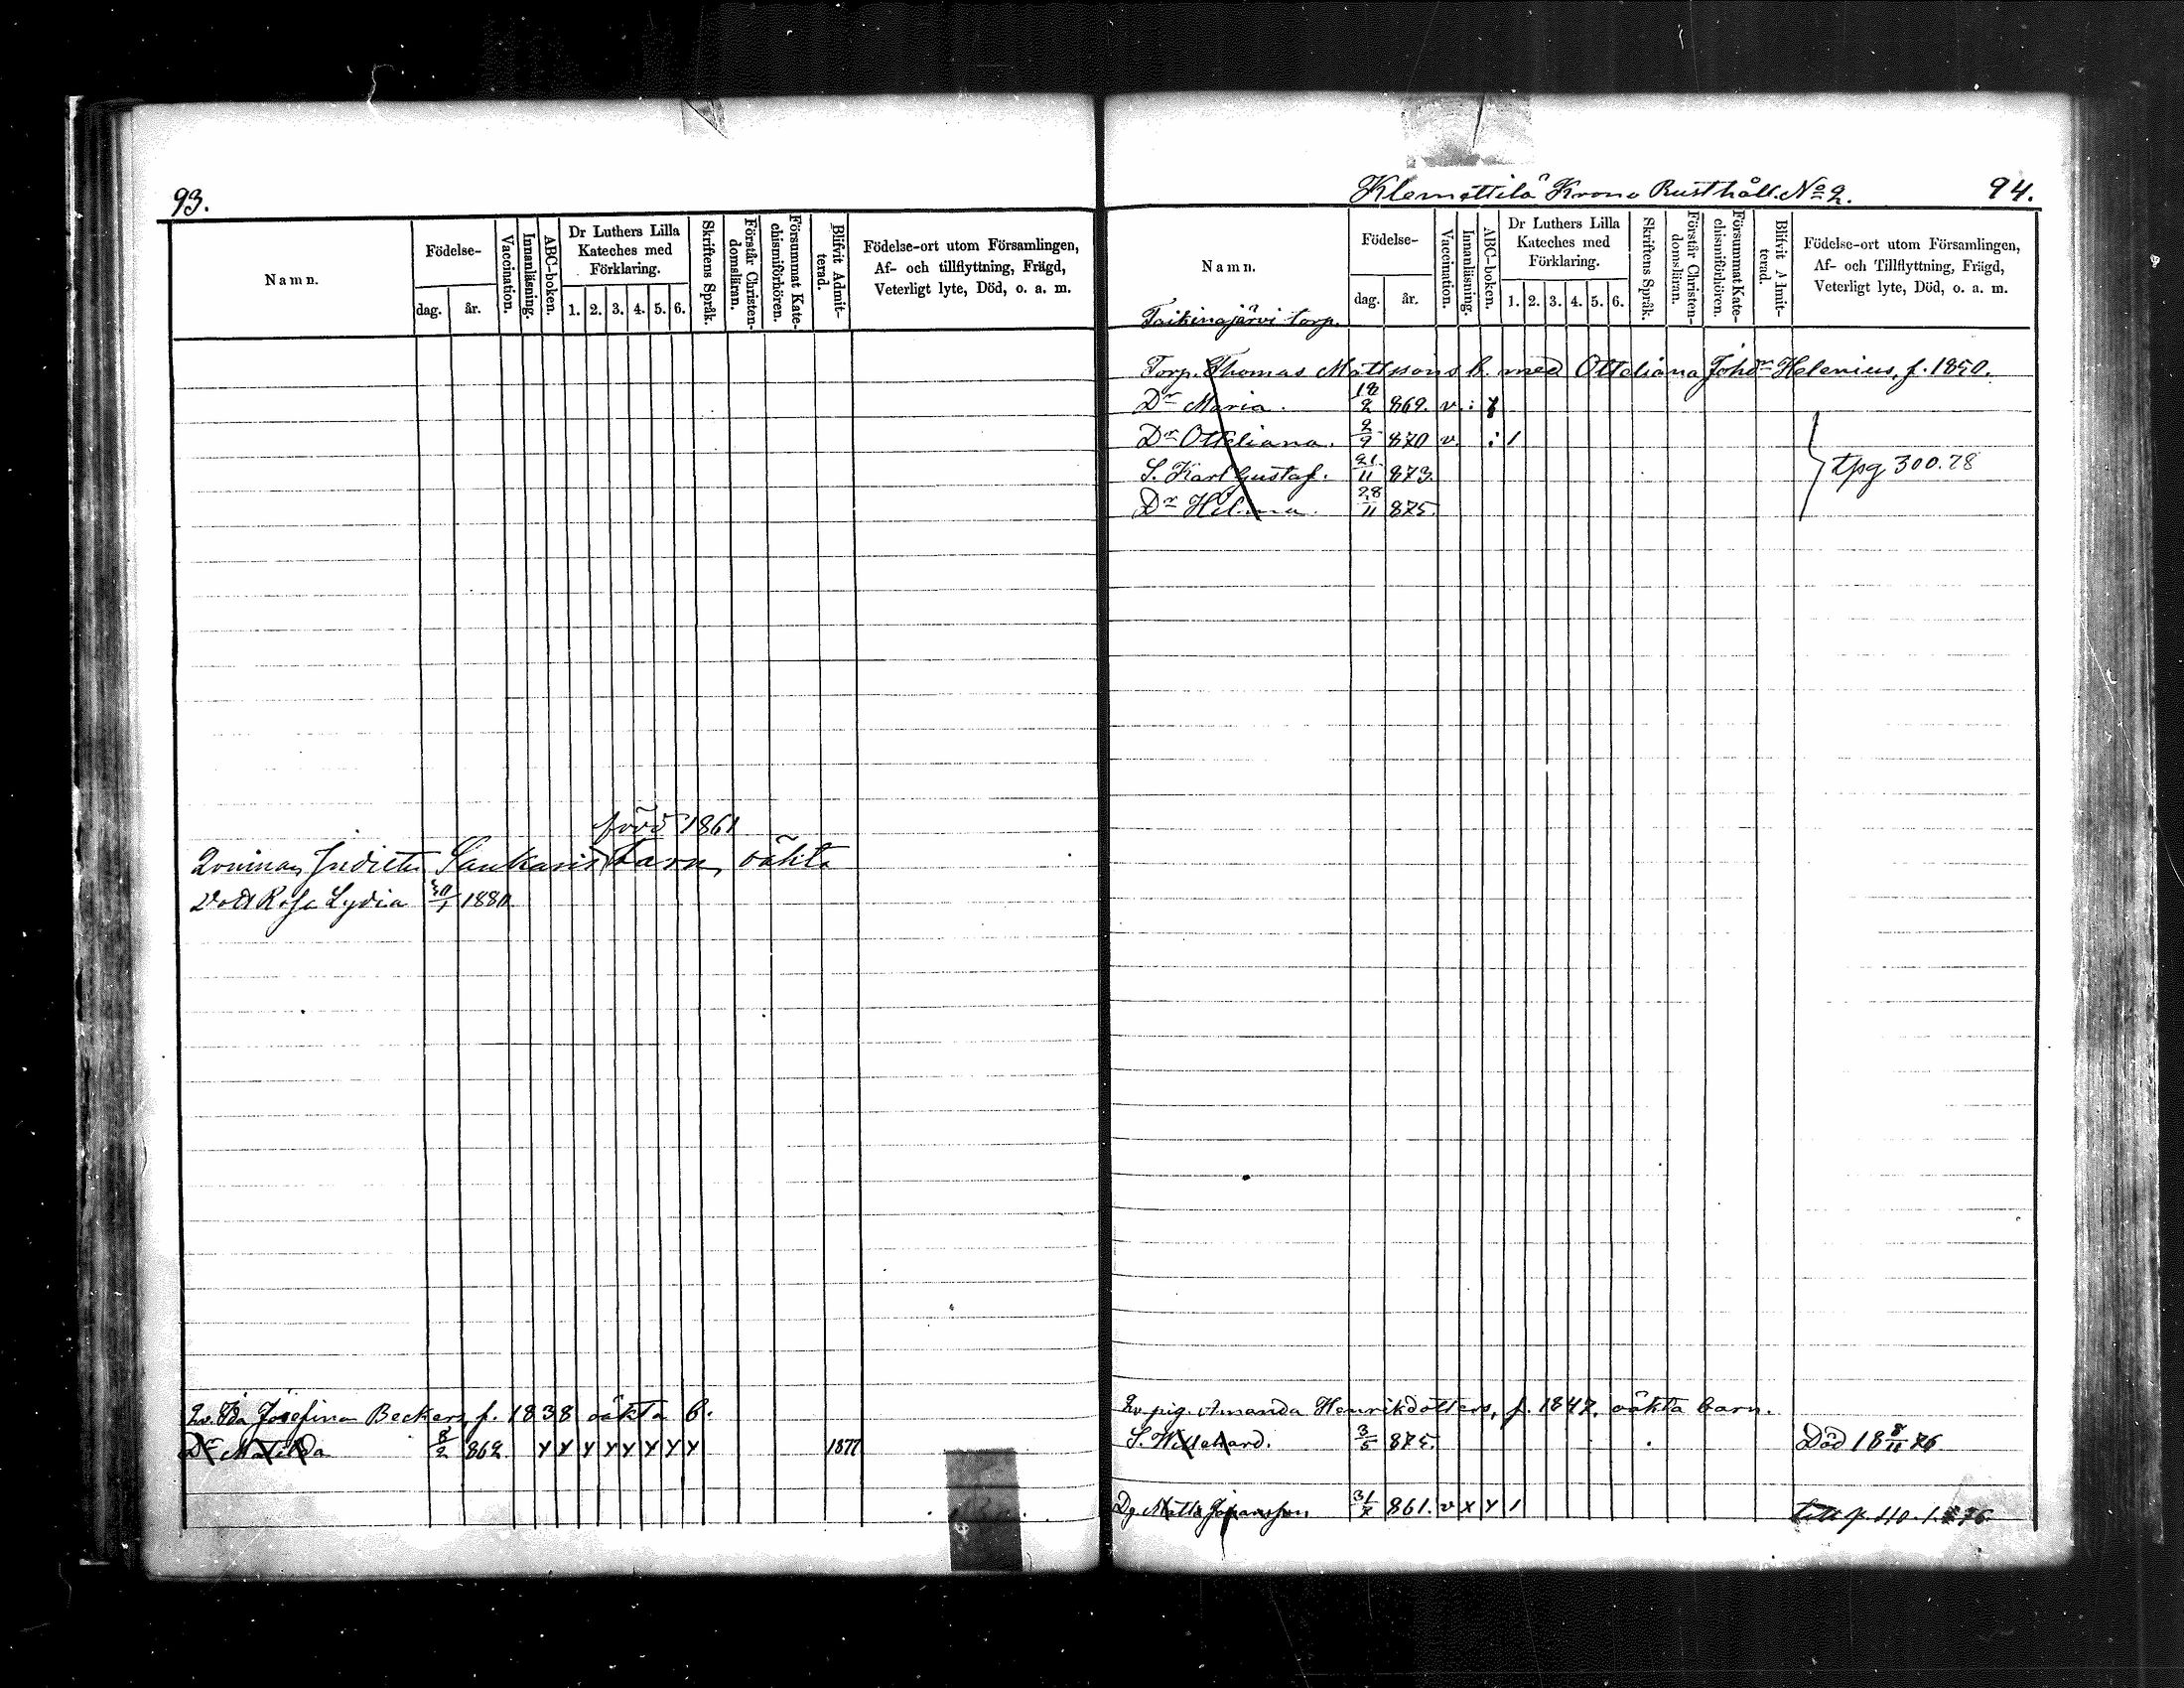 93.
Namn.
Födelse-
dag. år.
Vaccination.
Innanläsning.
ABC-boken.
Dr Luthers Lilla
Kateches med
Förklaring.
1. 2. 3. 4. 5. 6.
Skriftens Språk.
Förstår Christen-
domsläran.
Försummat Kate-
chismiförhören.
Blifvit Admit-
terad.
Födelse-ort utom Församlingen,
Af- och tillflyttning, Frägd,
Veterligt lyte, Död, o. a. m.
född 1861
Qvinnan barn oäkta
Rosa Lydia 30/1 1880
Qv. Ida Josefina Beckers, f. 1838 oäkta b.
Dr Matilda 8/2 862. x x x x x x x x 1877
Klemettilä Krono Rusthåll. No 2. 94.
Namn.
Födelse-
dag. år.
Vaccination.
Innanläsning.
ABC-boken.
Dr Luthers Lilla
Kateches med
Förklaring.
1. 2. 3. 4. 5. 6.
Skriftens Språk.
Förstår Christen-
domsläran.
Försummat Kate-
chismiförhören.
Blifvit Admit-
terad.
Födelse-ort utom Församlingen,
Af- och Tillflyttning, Frägd,
Veterligt lyte, Död, o. a. m.
Taikinajärvi torp.
Torp. Thomas Mattssons b. med Otteliana Johdr Helenius, f. 1850.
Dr Maria. 18/2 869. v.
Dr Otteliana. 2/9 870 v. 1
S. Karl Gustaf. 21/11 873.
tpg 300.78
Dr Hilma. 28/11 875.
Qv. pig. Amanda Henriksdotters, f. 1847. oäkta barn.
S. Willehard. 3/5 875. Död 18 8/11 76
Dg. Matts Johansson 31/7 861. v x x 1